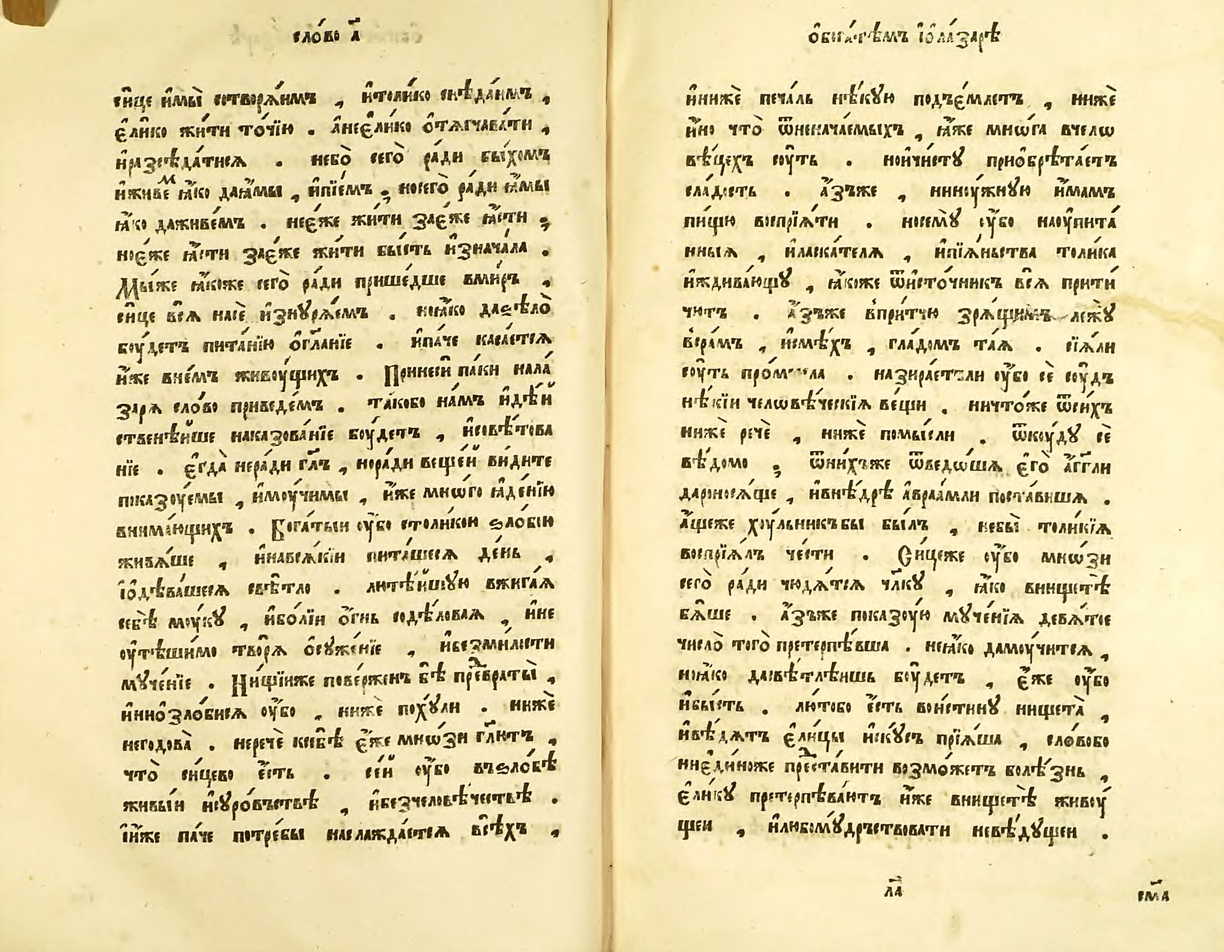 сло́во а҃
си́це и҆мы̀ сотворѧ́имъ , и҆толи́ко снѣ́даимъ ,
є҆ли́ко жи́ти то́чїю . а҆нєє҆ли́ко ѻ҆тѧгчава́ти ,
и҆разсѣда́тисѧ . небо̀ сего̀ ра́ди бы́хомъ
и҆живе́м ꙗ҆́ко даꙗ҆мы , и҆пїе́мъ , носего̀ ра́ди ꙗ҆мы
ꙗ҆́ко даживе́мъ . неє҆́же жи́ти зає҆́же ꙗ҆́сти ,
ноє҆́же ꙗ҆́сти зає҆́же жи́ти бы́сть и҆знача́ла .
Мы́же ꙗ҆́коже сего̀ ра́ди прише́дше вми́ръ ,
си́це всѧ̀ насѐ и҆знурѧ́емъ . ноꙗ҆́ко даѕѣло̀
бꙋ́детъ пита́нїю ѻ҆гла́нїе . и҆па́че каса́етсѧ
и҆́же вне́мъ живоу́щихъ . Принеси́ па́ки нала́
зарѧ сло́во приведе́мъ . та́кобо на́мъ и҆дѣ́й
ственѣ́йше наказова́нїе боу́детъ , и҆совѣ́това
нїе . є҆гда̀ нера́ди гл҃ъ , нора́ди веще́й ви́дите
показоуемы , и҆моучимы , и҆́же мно́го ꙗ҆де́нїю
внима́ющихъ . Бога́тыи оу҆́бо столи́кои ѕло́бїю
живѧ́ше , и҆навсѧ́кїи пита́шесѧ де́нь ,
і҆ѻ҆дѣва́шесѧ свѣ́тло . лютѣ́йшꙋю вжига́ѧ
себѣ̀ мꙋ́кꙋ , и҆бо́лїи ѻ҆́гнь содѣ́ловаѧ , и҆не
оу҆тѣ́шимо творѧ̀ ѻ҆сꙋже́нїе , и҆безми́лости
мꙋче́нїе . Ни́щїиже пове́рженъ бѣ̀ преⷣвраты̀ ,
и҆ниѻ҆зло́бисѧ оу҆́бо , нижѐ похꙋ́ли . нижѐ
негодова̀ . неречѐ ксебѣ̀ є҆́же мно́ѕи гл҃ютъ ,
что̀ си́цево є҆́сть . се́й оу҆́бо въѕло́бѣ
живы́и и҆сꙋро́въствѣ , и҆безчеловѣ́чествѣ .
і҆и҆́же па́че потре́бы наслажда́етсѧ всѣ́хъ ,
ѻ҆бога́тѣмъ і҆ѻ҆ла́зарѣ
и҆нижѐ печа́ль нѣ́кꙋю подъє́млетъ , нижѐ
и҆́но что̀ ѿненача́емыхъ , ꙗ҆́же мнѡ́га вчелѡ
вѣ́цехъ сꙋ́ть . нои҆чи́стꙋ приѻбрѣта́етъ
сла́дость . а҆́зъже , нинꙋ́жнꙋю и҆́мамъ
пи́щю воспрїѧ́ти . носемꙋ̀ оу҆́бо наоупита́
нныѧ , и҆ласка́телѧ , и҆пїѧ́ньства толи́ка
и҆ждива́ющꙋ , ꙗ҆́коже ѿи҆сто́чникъ всѧ̀ прити́
чютъ . а҆́зъже впри́тчю зрѧ́щимъ лежꙋ̀
всра́мъ , и҆смѣ́хъ , гла́домъ та́ѧ . сїѧ́ли
соу́ть про́мысла . назира́етъли оу҆́бо сѐ соу́дъ
нѣ́кїи человѣ́ческїѧ ве́щи . ничто́же ѿси́хъ
нижѐ речѐ , нижѐ помы́сли . ѿкоу́дꙋ сѐ
вѣ́домо , ѿни́хъже ѿведо́шѧ є҆го̀ а҆́гг҃ли
дароносѧ́ще , и҆внѣ́дрѣ а҆враа́мли поста́вишѧ .
а҆́щеже хоу́льникъбы бы́лъ , небы̀ толи́кїѧ
воспрїѧ́лъ че́сти . Си́цеже оу҆́бо мно́ѕи
сего̀ ра́ди чюдѧ́тсѧ чл҃кꙋ , ꙗ҆́ко внищетѣ̀
бѧ́ше . а҆́зъже показоую мꙋче́нїѧ девѧ́тое
число̀ того̀ претерпѣ́вша . неꙗ҆́ко дамоучи́тсѧ ,
ноꙗ҆́ко дасвѣтлѣ́ишь боу́детъ , є҆́же оу҆́бо
и҆бы́сть . лю́тобо є҆́сть вои́стинꙋ нищета̀ ,
и҆вѣ́дѧтъ є҆ли́цы и҆́скусъ прїѧ́ша , сло́вобо
ниє҆ди́ноже преⷣста́вити возмо́жетъ болѣ́знь ,
є҆ли́кꙋ претерпѣва́ютъ и҆́же внищетѣ̀ живоу́
щеи , и҆любомꙋ́дръствовати невѣ́дꙋщеи .
ла҃
сма҃